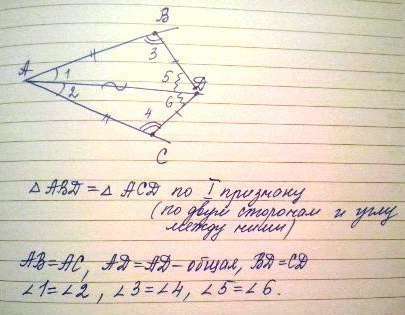 B
3
A 1 5 D
2 6
4
C
△ ABD = △ ACD по I признаку
(по двум сторонам и углу
между ними)
AB = AC, AD = AD – общая, BD = CD
∠1 = ∠2, ∠3 = ∠4, ∠5 = ∠6.